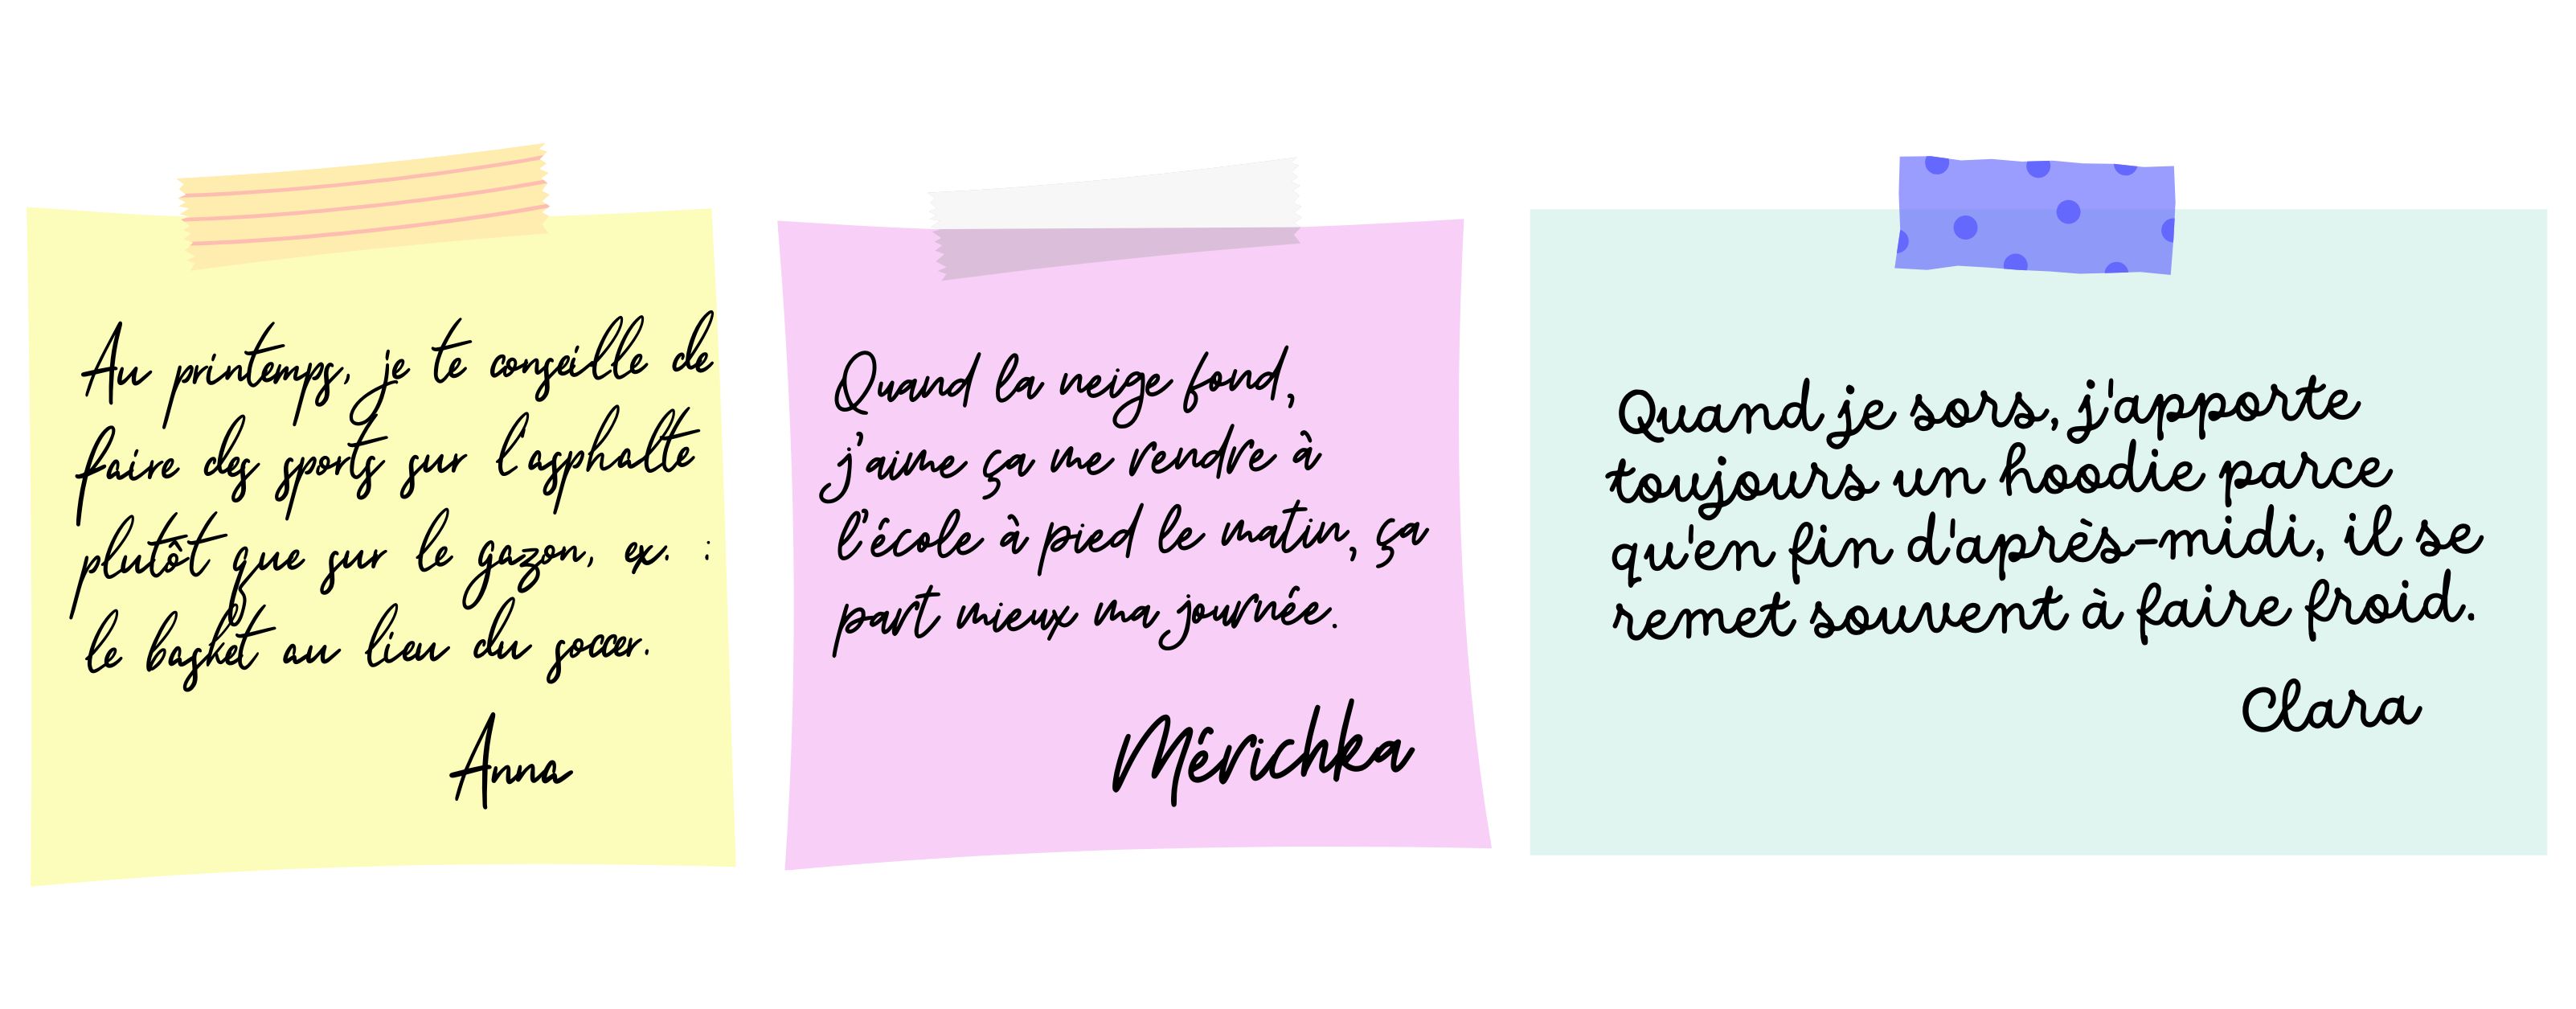 Au printemps, je te conseille de
faire des sports sur l'asphalte
plutôt que sur le gazon, ex. :
le basket au lieu du soccer.
Anna
Quand la neige fond,
j'aime ça me rendre à
l'école à pied le matin, ça
part mieux ma journée.
Mérichka
Quand je sors, j'apporte
toujours un hoodie parce
qu'en fin d'après-midi, il se
remet souvent à faire froid.
Clara